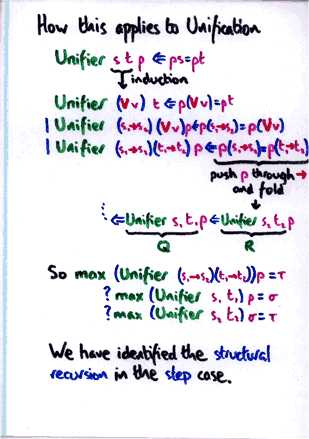 How this applies to Unification
Unifier s t p ⇐ ps=pt
↓ induction
Unifier (Vv) t ⇐ p(Vv)=pt
| Unifier (s₁→s₂) (Vv) p ⇐ p(s₁→s₂)=p(Vv)
| Unifier (s₁→s₂)(t₁→t₂) p ⇐ p(s₁→s₂)=p(t₁→t₂)
push p through →
and fold
⇐ Unifier s₁ t₁ p ⇐ Unifier s₂ t₂ p
Q R
So max (Unifier (s₁→s₂)(t₁→t₂)) p = τ
? max (Unifier s₁ t₁) p = σ
? max (Unifier s₂ t₂) σ = τ
We have identified the structural
recursion in the step case.